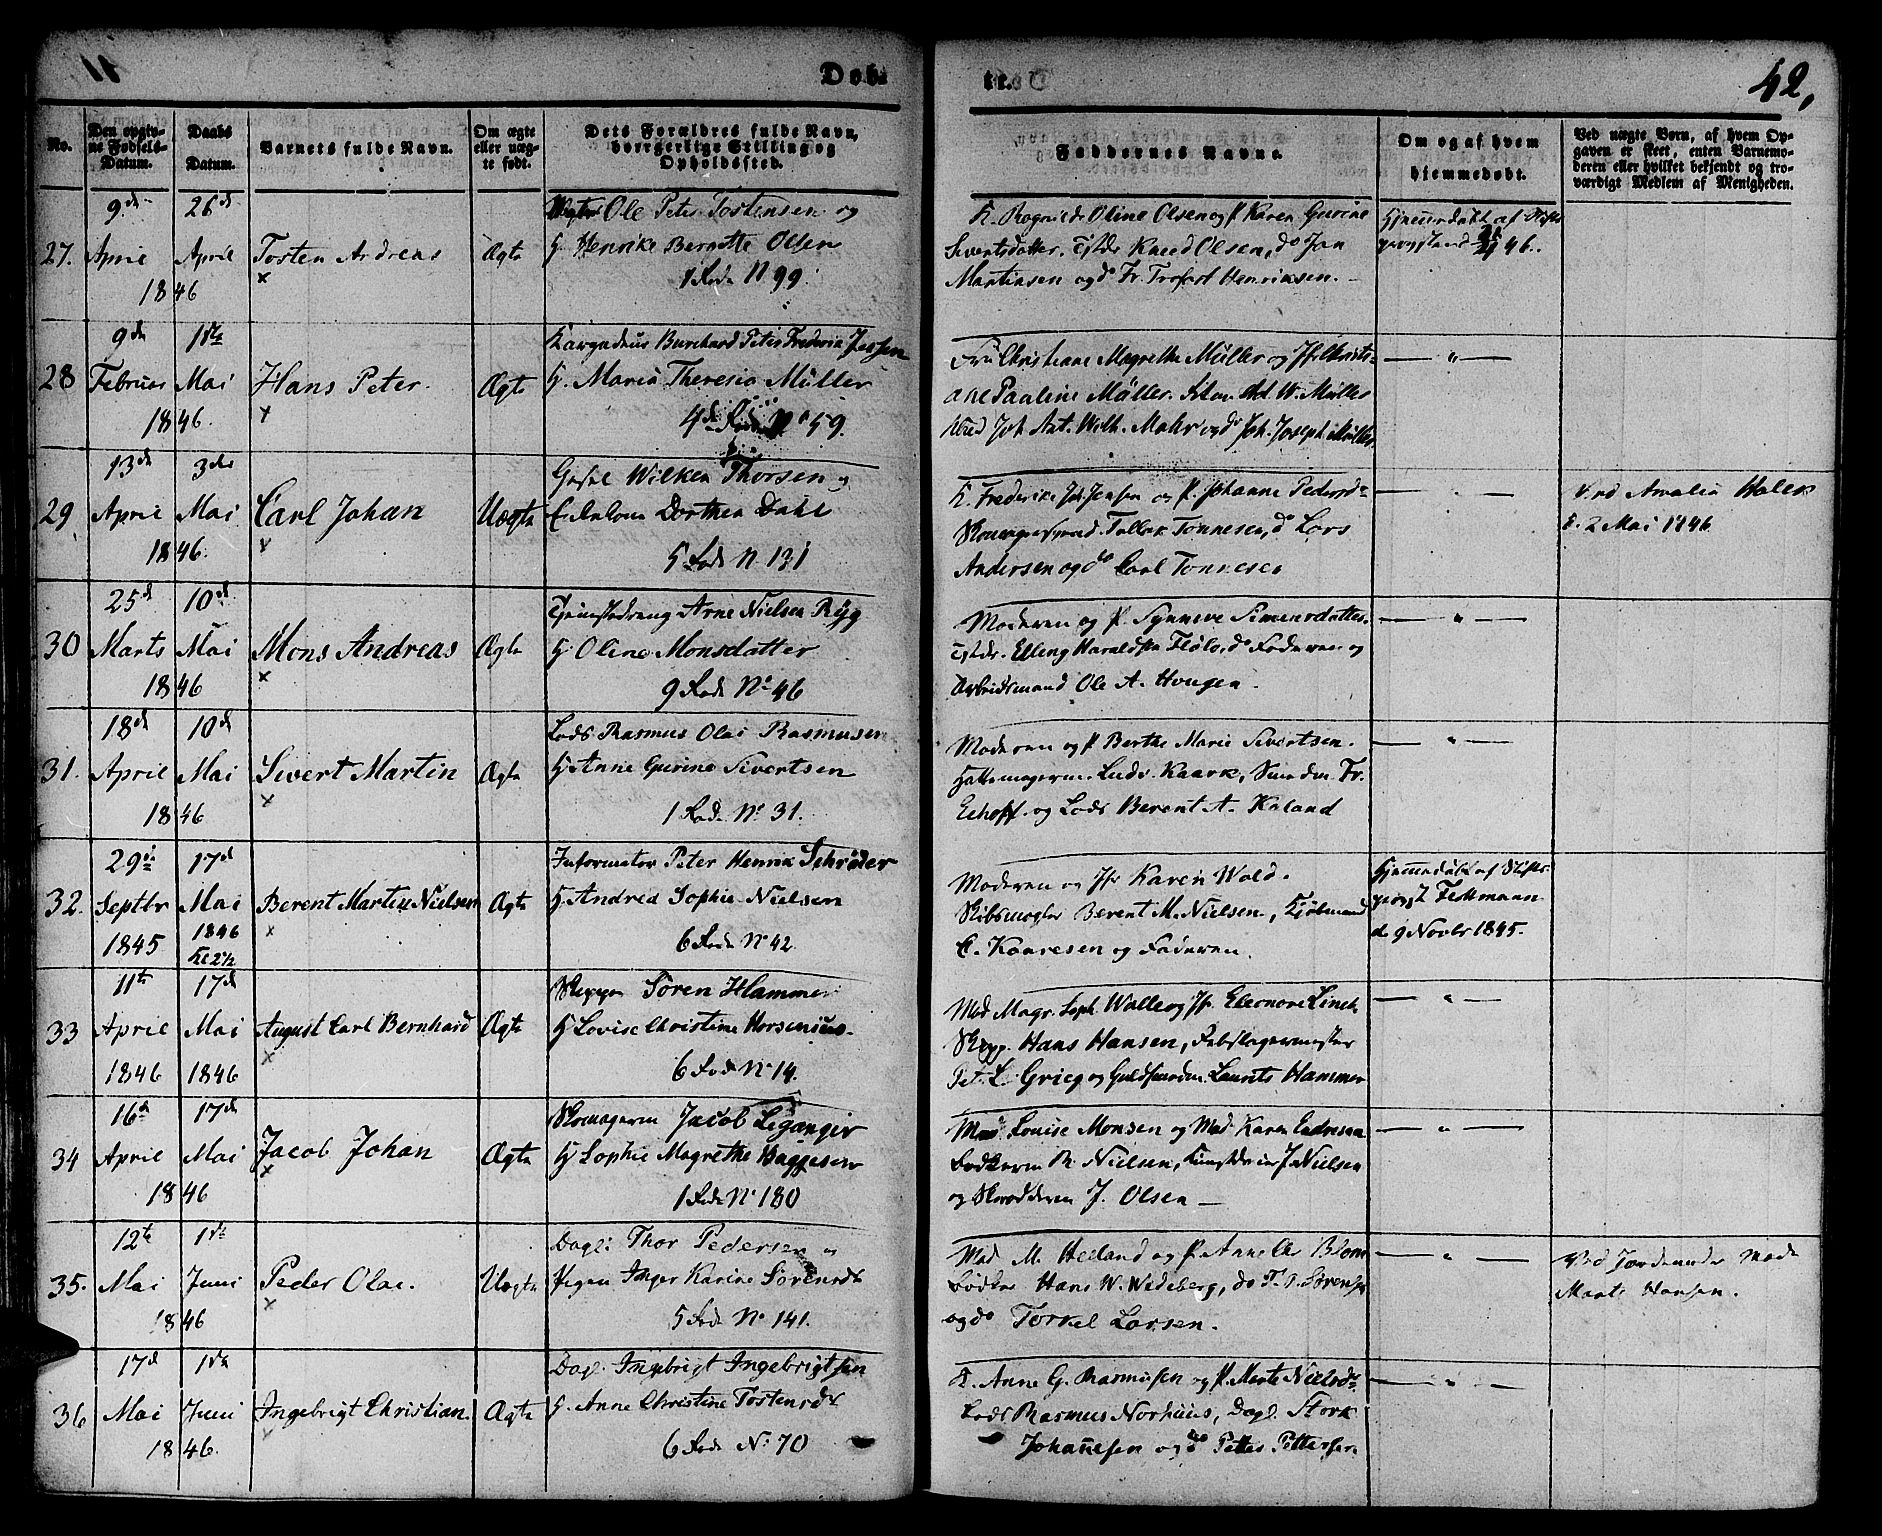 Døb-
te.
42,
No.
Den opgiv-
ne Fødsels-
Datum.
Daabs
Datum.
Barnets fulde Navn.
Om ægte
eller uæg-
te født.
Dets Forældres fulde Navn,
borgerlige Stilling og
Opholdssted.
Faddernes Navne.
Om og af hvem
hjemmedøbt.
Ved uægte Børn, af hvem Op-
gaven er skeet, enten Barnemo-
deren eller hvilket bekjendt og tro-
værdigt Medlem af Menigheden.
27. 9de April 1846
26de April
Tosten Andreas
Ægte
Ole Peter Tostensen og
H. Henrike Bernette Olsen
1 Rode N 99.
K. Ragnilde Oline Olsen og P. Karen Gurine
Sivertsdatter. Tjstdr Knud Olsen, do Jan
Martinsen og do Fr. Trofast Henriksen.
Hjemmedøbt af
46.
28 9de Februar 1846.
1ste Mai
Hans Peter.
Ægte
Burchard Peter Frederik Jessen
H. Maria Theresia Müller
4de Rode No 59.
Fru Christiane Magrethe Müller og Jfr Christi-
ane Pauline Müller. W. Müller
Joh. Ant. Wilh. Mohr og do Joh. Joseph Müller.
29 13de April 1846.
3die Mai
Carl Johan
Uægte
Wilken Thorsen og
Dorthea Dahl
5 Rode N. 131
K. Frederike Jensen og P. Johanne Pedersdr
Tollak Tønnesen, do Lars
Andersen og do Carl Tønnesen
Ved Amalia Holck
2 Mai 1846
30 25de Marts 1846
10de Mai
Mons Andreas
Ægte
Tjenestedreng Arne Nielsen Ryg
H. Oline Monsdatter
9 Rode No 46
Moderen og P. Synneve Simensdatter.
Tjstdr. Elling Haraldsen Fløló, do Faderen og
Arbeidsmand Ole A. Hougen.
31. 18de April 1846
10de Mai
Sivert Martin
Ægte
Lods Rasmus Olai Rasmusen
H. Anne Gurine Sivertsen
1 Rode No 31.
Moderen og P. Berthe Marie Sivertsen.
Hattemagerm. Ludv. Kaark, Smedm. Fr.
Eckoff. og Lods Berent A. Kaland
32. 29de Septbr 1845
17de Mai 1846 Kl 2½
Berent Martin Nielsen
Ægte
Informator Peter Henrik Schrøder
H. Andrea Sophie Nielsen
6 Rode No 42
Moderen og Jfr Karen Wold.
Skibsmægler Berent M. Nielsen, Kjøbmand
C. Kaaresen og Faderen.
Hjemmedøbt af Stifts-
provst
d. 9 Novbr 1845.
33 11te April 1846
17de Mai 1846
August Carl Bernhard
Ægte
Skipper Søren Hammer
H. Lovise Christine Horsenius.
6 Rode No 14.
Mad Magr. Soph. Walle og Jfr. Eleonore Linck
Skipp. Hans Hansen,
Pet. L. Grieg og Guldsmedm. Laurits Hammer
34 16de April 1846
17de Mai
Jacob Johan
Ægte
Skomagerm Jacob Leganger
H. Sophie Magrethe Baggesen
1 Rode No 180
Mad Louise Monsen og Mad. Karen Endresen
Bødkerm R. Nielsen, J. Nielsen
og Skrædderm J. Olsen
35. 12te Mai 1846
1ste Juni
Peder Olai.
Uægte
Dagl: Thor Pedersen og
Pigen Inger Karine Sørensdr
5 Rode No 141.
Mad M. Heiland og P. Anne Chr Blom
Bødker Hans W. Wedeberg, do T. O. Sørensen
og do Torkel Larsen.
Ved Jordemoder Mad
Marte Hansen.
36 17de Mai 1846.
1ste Juni
Ingebrigt Christian.
Ægte
Dagl. Ingebrigt Ingebrigtsen
H. Anne Christine Tostensdr
6 Rode No 70
K. Anne G. Rasmusen og P. Marte Nielsdr
Lods Rasmus Norhuus, Dagl. Stork
Johannesen og do Petter Pettersen